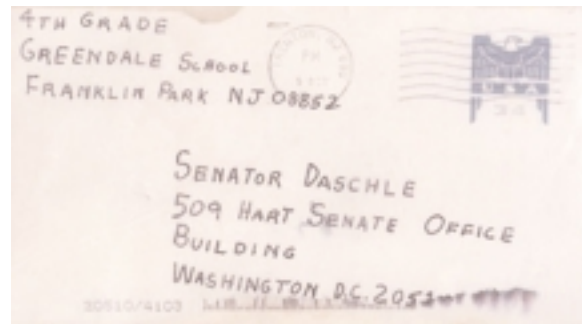 4TH GRADE
GREENDALE SCHOOL
FRANKLIN PARK NJ 08852
PM
USA
34
SENATOR DASCHLE
509 HART SENATE OFFICE
BUILDING
WASHINGTON D.C. 2053
20510/4103